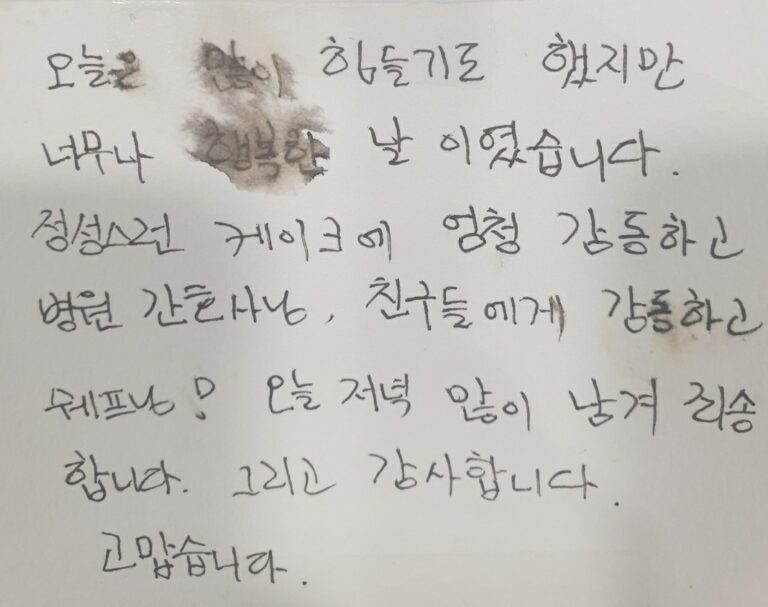 오늘은 많이 힘들기도 했지만
너무나 행복한 날 이였습니다.
정성스런 케이크에 엄청 감동하고
병원 간호사님, 친구들에게 감동하고
쉐프님! 오늘 저녁 많이 남겨 죄송
합니다. 그리고 감사합니다.
고맙습니다.